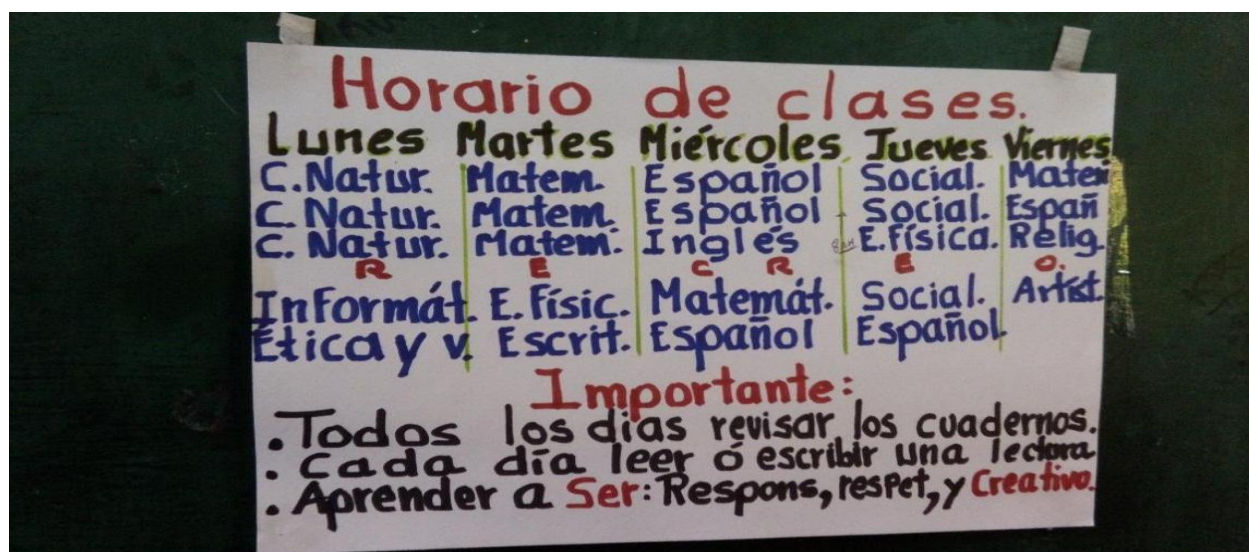 Horario de clases.
Lunes Martes Miércoles Jueves Viernes
C.Natur. Matem. Español Social. Matem
C.Natur. Matem. Español Social. Españ
C.Natur. Matem. Inglés E.física. Relig.
R E C R E O.
Informát. E.Físic. Matemát. Social. Artíst.
Ética y v. Escrit. Español Español.
Importante:
. Todos los días revisar los cuadernos.
. Cada día leer ó escribir una lectora
. Aprender a Ser: Respons, respet, y Creativo.